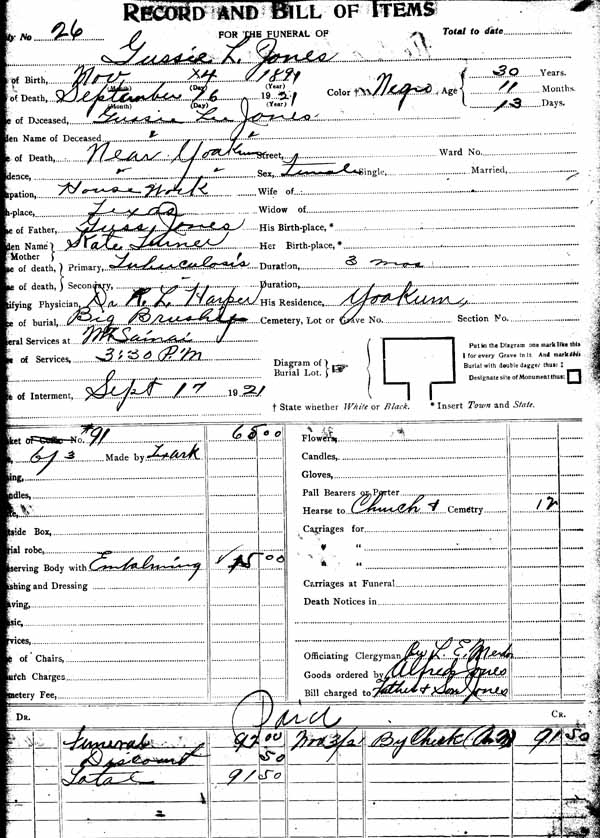 RECORD AND BILL OF ITEMS
No 26 FOR THE FUNERAL OF Total to date
Gussie L. Jones
of Birth, Nov X4 1891 30 Years.
(Month) (Day) (Year)
of Death, September 26 1921 Color † Negro Age 11 Months.
(Month) (Day) (Year)
13 Days.
e of Deceased, Gussie Jones
den Name of Deceased " "
e of Death, Near Yoakum Street, Ward No.
dence, " " Sex, Female Single, Married,
upation, House Work Wife of
h-place, Texas Widow of
e of Father, Guss Jones His Birth-place, *
den Name } Mother Kate Turner Her Birth-place, *
se of death, } Primary, Tuberculosis Duration, 3 mos
se of death, } Secondary, Duration,
tifying Physician, Dr R. L. Harper His Residence, Yoakum,
e of burial, Big Brushy Cemetery, Lot or Grave No. Section No.
eral Services at Mt Sainai
e of Services, 3:30 PM
Diagram of Burial Lot. } ☞
Put in the Diagram one mark like this
I for every Grave in it And mark this
Burial with double dagger thus: ‡
Designate site of Monument thus: □
e of Interment, Sept 17 1921
† State whether White or Black. * Insert Town and State.
ket or No. #91 65 00 Flowers,
6/3 Made by Candles,
ing, Gloves,
dles, Pall Bearers or Porter
Hearse to Church & Cemetry 12
tside Box, Carriages for
rial robe, " "
serving Body with Embalming ✓ 15 00 " "
shing and Dressing Carriages at Funeral
aving, Death Notices in
sic,
vices,
e of Chairs, Officiating Clergyman by L. E.
urch Charges Goods ordered by Alfred Jones
metery Fee, Bill charged to Father & Son Jones
DR. Paid CR.
Funeral 92 00 Nov 3/2 By Check 91 50
Discount 50
Total 91 50